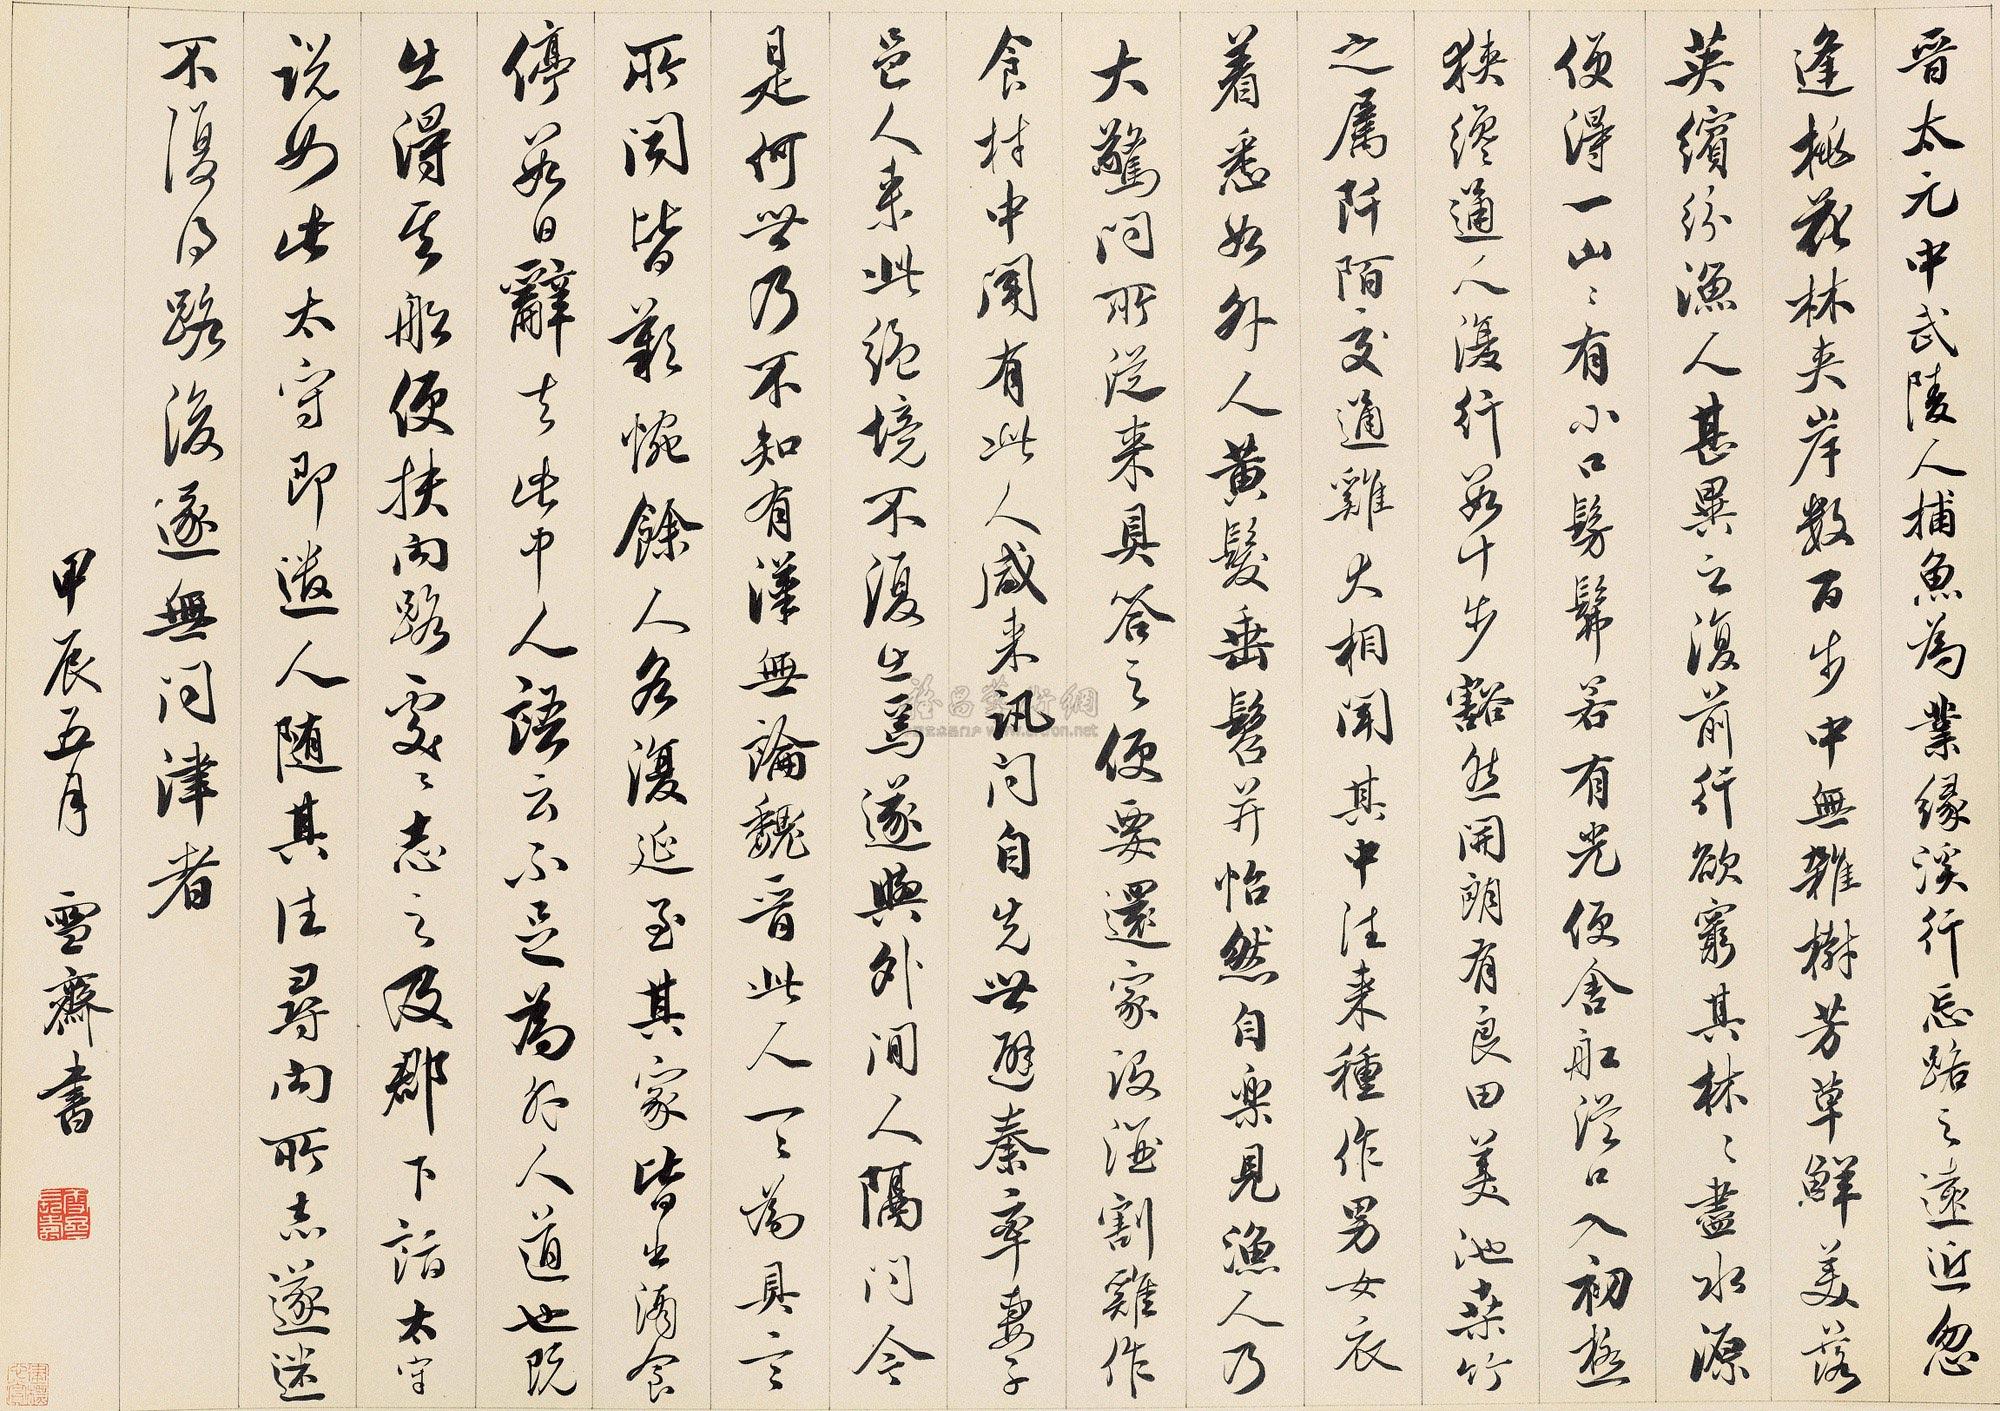 晋太元中武陵人捕魚為業緣溪行忘路之遠近忽
逢桃花林夹岸数百步中無雜樹芳草鮮美落
英繽紛漁人甚異之復前行欲窮其林〻盡水源
便得一山〻有小口髣髴若有光便舍舡從口入初極
狹纔通人復行数十步豁然開朗有良田美池桒竹
之属阡陌交通雞犬相聞其中往来種作男女衣
着悉如外人黄髪垂髫并怡然自楽見漁人乃
大驚問所從来具答之便要還家設酒割雞作
食村中聞有此人咸来訊問自先世避秦率妻子
邑人来此絶境不復出焉遂與外間人隔問今
是何世乃不知有漢無論魏晋此人一〻為具言
所聞皆歎惋餘人各復延至其家皆出酒食
停数日辭去此中人語云不足為外人道也既
出得其船便扶向路處〻志之及郡下詣太守
説如此太守即遣人随其往尋向所志遂迷
不復得路後遂無问津者
甲辰五月 雪齋書